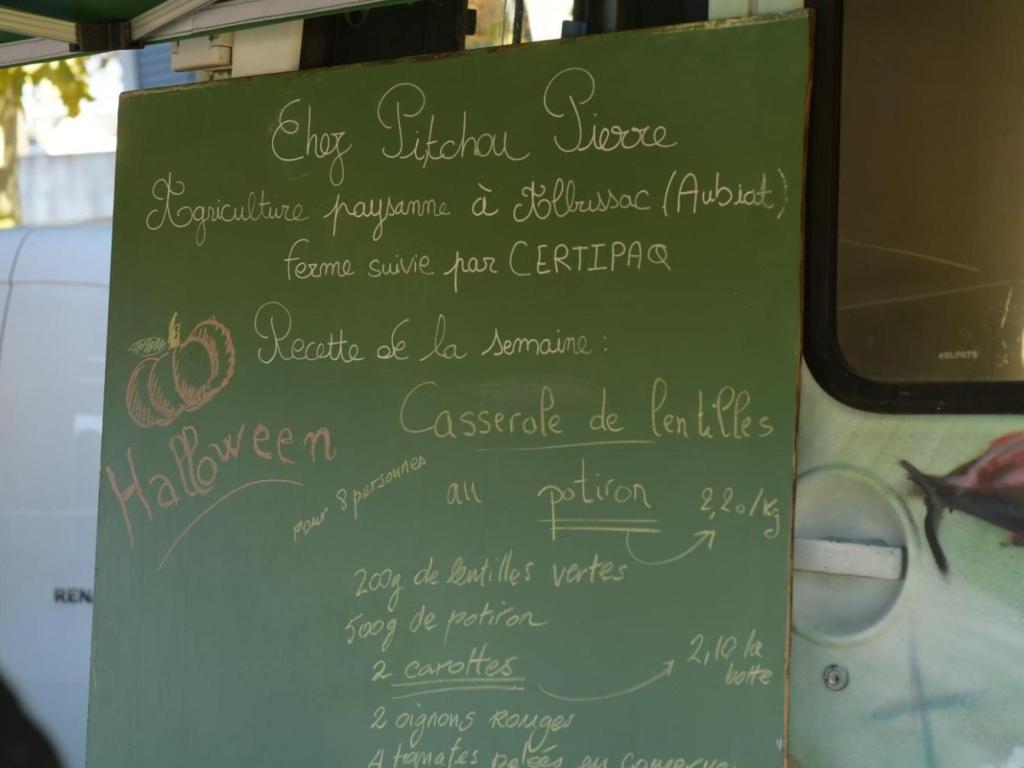 Chez Pitchou Pierre
Agriculture paysanne à Albussac (Aubiat)
ferme suivie par CERTIPAQ
Recette de la semaine :
Casserole de lentilles
au potiron 2,20/Kg
pour 8 personnes
Halloween
200g de lentilles vertes
500g de potiron
2 carottes
2,10 la
botte
2 oignons rouges
4 tomates pelées en conserve
REN
49LP075